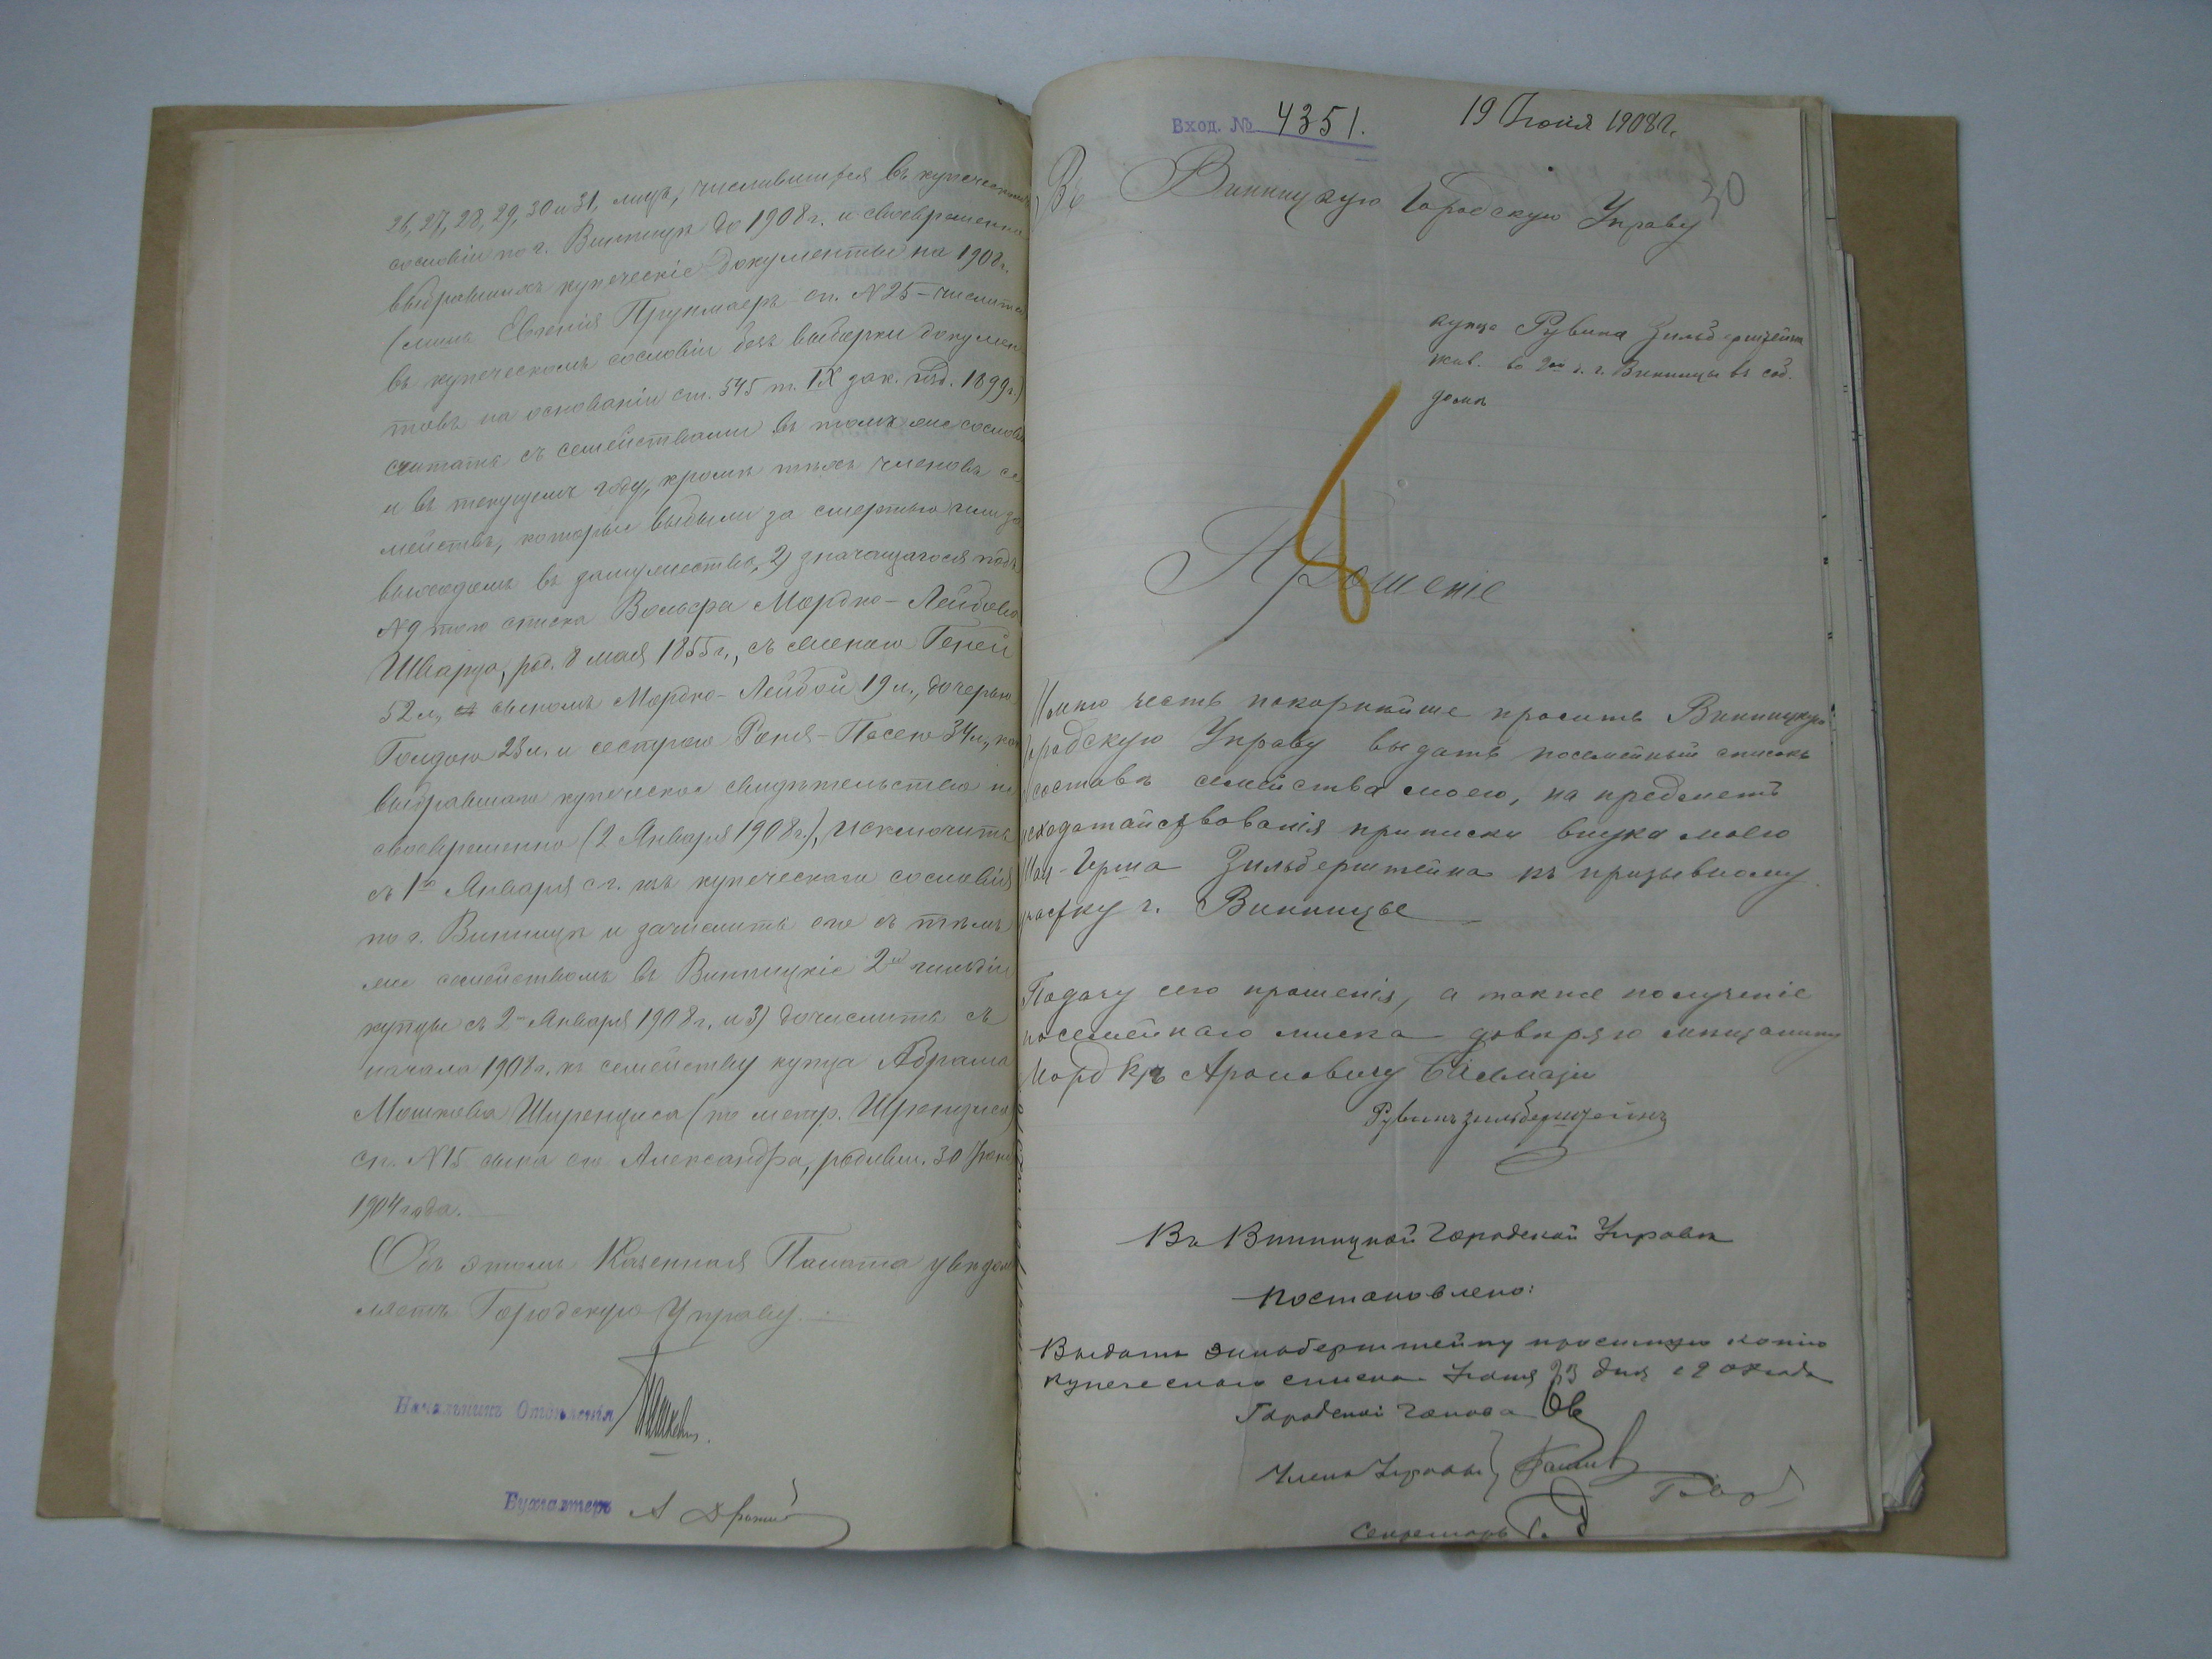 26, 27, 28, 29, 30 и 31, лицъ, числившихся въ купеческомъ
сословіи по г. Винницѣ до 1908 г. и своевременно
выбравшихъ купеческіе документы на 1908 г.
(лишь Евгенія сп. № 25 – числится
въ купеческомъ сословіи безъ выборки докумен
товъ на основаніи ст. 545 т. IX зак. изд. 1899 г.)
считать съ семействами въ томъ же сословіи
и въ текущемъ году, кромѣ тѣхъ членовъ се
мействъ, которые выбыли за смертью или за
выходомъ въ замужество, 2) значащагося подъ
№ 9 того списка Вольфа Мордко-Лейбова
Шварца, род. 8 мая 1855 г., съ женою Геней
52 л., сыномъ Мордко-Лейбой 19 л., дочерью
Голдою 23 л. и сестрою Раня-Песею 34 л., не
выбравшаго купеческое свидѣтельство не
своевременно (2 Января 1908 г.), исключить
съ 1го Января с. г. изъ купеческаго сословія
по г. Винницѣ и зачислить его съ тѣмъ
же семействомъ въ Винницкіе 2й гильдіи
купцы съ 2 Января 1908 г. и 3) дочислить съ
начала 1908 г. къ семейству купца Абрама
Мошкова Ширенциса (по метр. Шренциса)
сп. № 15 сына его Александра, родивш. 30
1904 года.
Объ этомъ Казенная Палата увѣдом
ляетъ Городскую Управу.
Начальникъ Отдѣленія
Бухгалтеръ А
Вход. № 4351. 19 Іюня 1908 г.
30
Въ Винницкую Городскую Управу
купца Рувина Зильберштейна
жив. во 2ой ч. г. Винницы въ соб.
домѣ
8
Прошеніе
Имѣю честь покорнѣйше просить Винницкую
Городскую Управу выдать посемейный списокъ
о составѣ семейства моего, на предметъ
исходатайствованія приписки внука моего
Герша Зильберштейна къ призывному
участку г. Винницы
Подачу сего прошенія, а также полученіе
посемейнаго списка довѣряю мѣщанину
Мордкѣ Ароновичу
Рувинъ Зильберштейнъ
Въ Винницкой Городской Управѣ
Постановлено:
Выдать Зильберштейну просимую копію
купеческаго списка Іюня 23 дня 1908 года
Городской Голова
Члены Управы
Секретарь